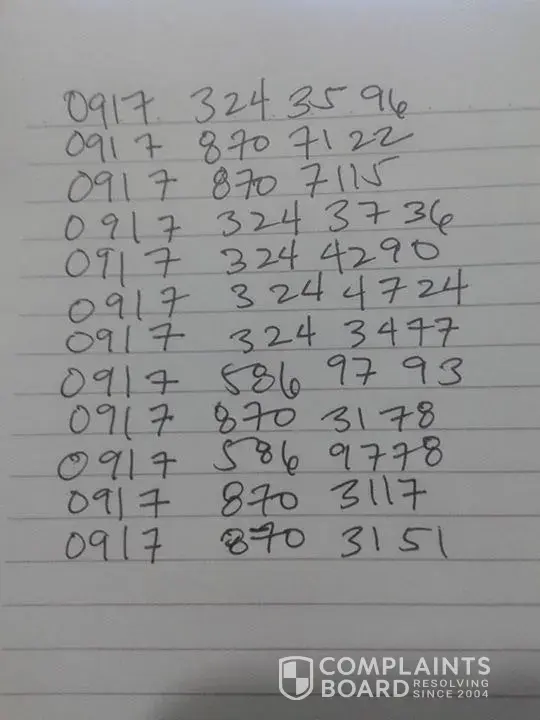 0917 324 3596
0917 870 7122
0917 870 7115
0917 324 3736
0917 324 4290
0917 324 4724
0917 324 3477
0917 586 97 93
0917 870 3178
0917 586 9778
0917 870 3117
0917 870 3151
COMPLAINTS
BOARD RESOLVING
SINCE 2004